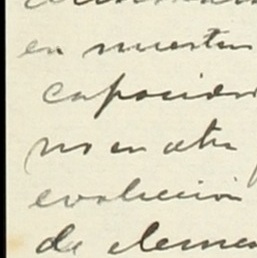 en nuestra
capacidad
no en otra
evolución
de elemen